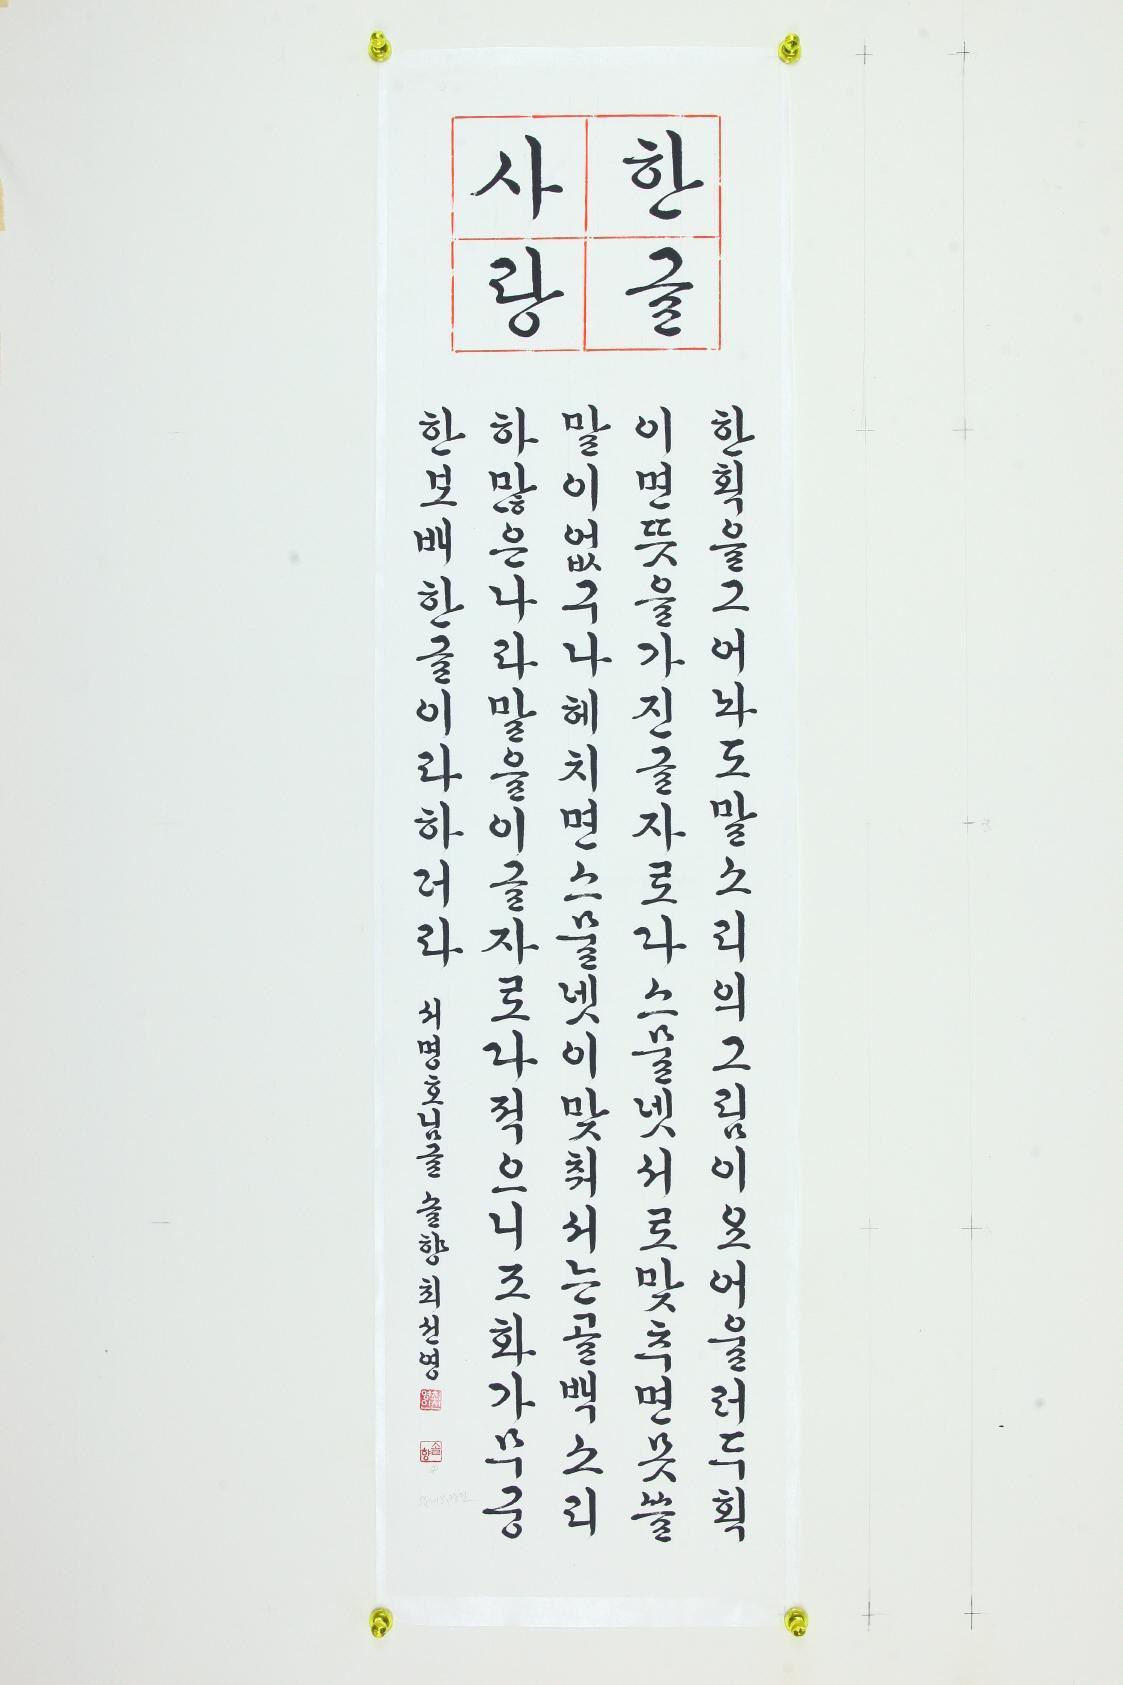 한글
사랑
한획을그어놔도말소리의그림이오어울러두획
이면뜻을가진글자로다스믈넷서로맞추면못쓸
말이없구나헤치면스믈넷이맞춰서는골백소리
하많은나라말을이글자로다적으니조화가무궁
한보배한글이라하더라
서명호님글 솔향 최선영
솔향